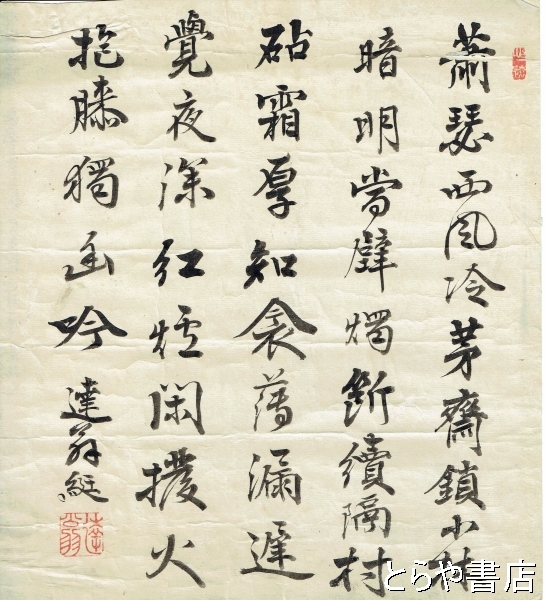 蕭瑟西風冷茅齋鎖小林
暗明當壁燭斷續隔村
砧霜厚知衾薄漏遲
覺夜深紅爐閑撥火
抱膝獨幽吟
達翁綎
とらや書店